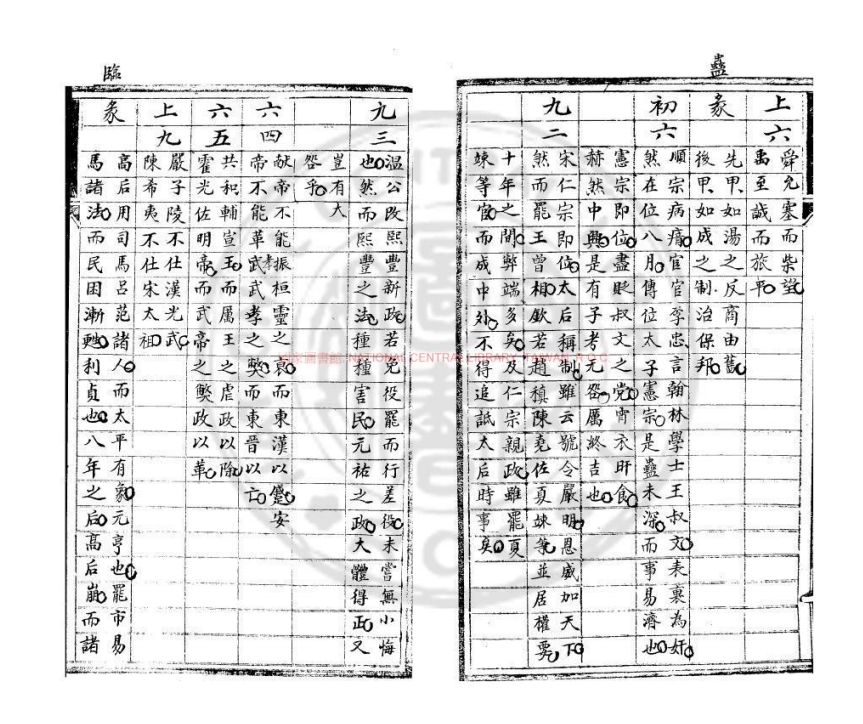 蠱
上六
舜允塞而柴望
禹至誠而旅平
彖
先甲如湯之反商由舊
後甲如成之制治保邦
初六
順宗病瘖宦官李忠言翰林學士王叔文表裏為奸
然在位八月傳位太子憲宗是蠱未深而事易濟也
憲宗即位盡貶叔文之黨宵衣旰食
赫然中興是有子考无咎厲終吉也
九二
宋仁宗即位太后稱制雖云號令嚴明恩威加天下
然而罷王曾相欽若趙稹陳堯佐夏竦等並居權要
十年之間弊端多矣及仁宗親政雖罷夏
竦等官而成中外不得追詆太后時事矣
九三
溫公改熙豐新政若免役罷而行差役未嘗無小悔
也然而熙豐之法種種害民元祐之政大體得正又
豈有大
咎乎
六四
獻帝不能振桓靈之衰而東漢以蹙安
帝不能革武孝武孝之獘而東晉以亡
六五
共和輔宣王而厲王之虐政以除
霍光佐明帝而武帝之獘政以革
上九
嚴子陵不仕漢光武
陳希夷不仕宋太祖
臨
彖
高后用司馬呂范諸人而太平有象元亨也罷市易
馬諸法而民困漸甦利貞也八年之后高后崩而諸
國家圖書館 NATIONAL CENTRAL LIBRARY, TAIWAN, R.O.C